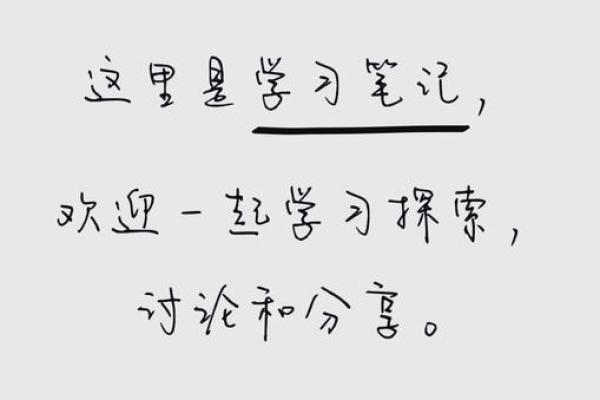 这里是学习笔记,
欢迎一起学习探索,
讨论和分享。